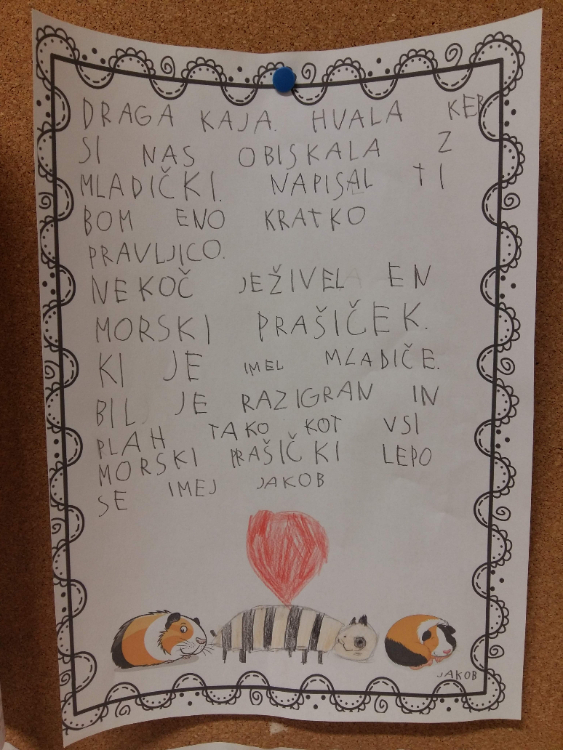 DRAGA KAJA. HVALA KER
SI NAS OBISKALA Z
MLADIČKI. NAPISAL TI
BOM ENO KRATKO
PRAVLJICO.
NEKOČ JEŽIVEL EN
MORSKI PRAŠIČEK.
KI JE IMEL MLADIČE.
BIL JE RAZIGRAN IN
PLAH TAKO KOT VSI
MORSKI PRAŠIČKI LEPO
SE IMEJ JAKOB
JAKOB